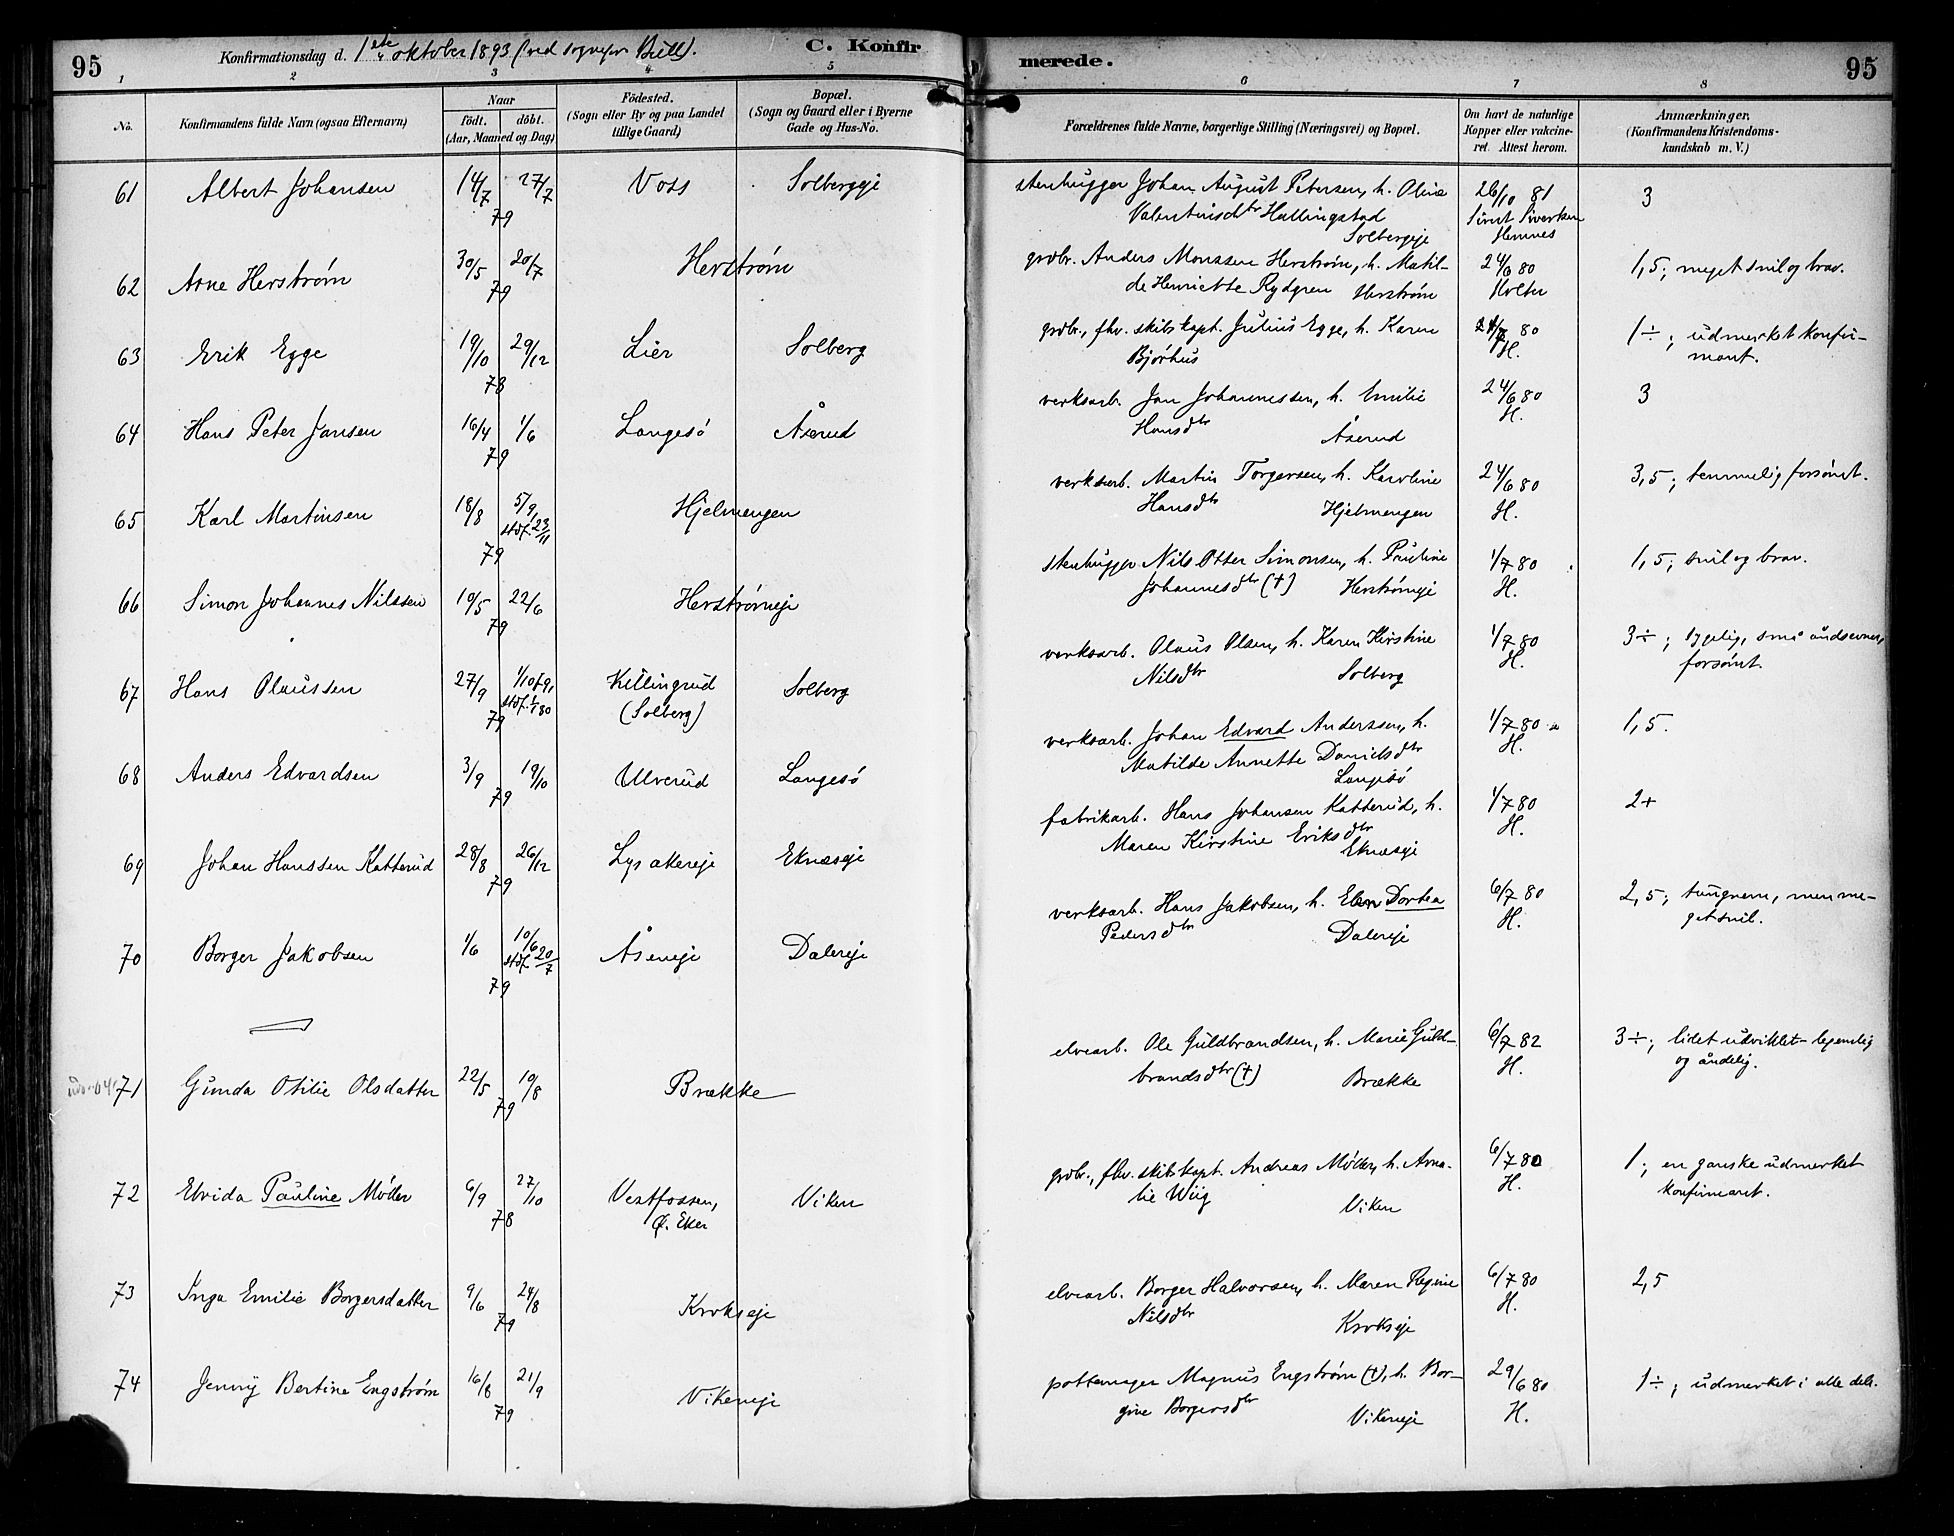 95
Konfirmationsdag d. 1ste oktober 1893 (ved sognepr. Bull).
C. Konfirmerede.
95
1 2 3 4 5 6 7 8
No.
Konfirmandens fulde Navn (ogsaa Efternavn)
Naar
födt. döbt.
(Aar, Maaned og Dag)
Födested.
(Sogn eller By og paa Landet
tillige Gaard)
Bopæl.
(Sogn og Gaard eller i Byerne
Gade og Hus-No.
Forældrenes fulde Navne, borgerlige Stilling (Næringsvei) og Bopæl.
Om havt de naturlige
Kopper eller vaccine-
ret. Attest herom.
Anmærkninger.
(Konfirmandens Kristendoms-
kundskab m. V.)
61 Albert Johansen 14/7 27/7 79 Voss Solbergeje
stenhugger Johan August Petersen, h. Oline
Valentinsdtr Hallingstad
Solbergeje
26/10 81
Sivert Sivertsen
Hemnes
3
62 Arne Herstrøm 30/5 20/7 79 Herstrøm
grdbr. Anders Monssen Herstrøm, h. Matil-
de Henriette Rydgren Herstrøm
24/6 80
Holter
1,5; meget snil og brav.
63 Erik Egge 19/10 29/12 78 Lier Solberg
grdbr., fhv. skibskapt. Julius Egge, h. Karen
Bjørhus
80
H.
1÷; udmerket konfir-
mant.
64 Hans Peter Jansen 16/4 1/6 79 Langesö Åserud
verksarb. Jan Johannessen, h. Emilie
Hansdtr Åserud
24/6 80
H.
3
65 Karl Martinsen 18/8 5/9, stdf. 23/11 79 Hjelmengen
verksarb. Martin Torgersen, h. Karoline
Hansdtr Hjelmengen
24/6 80
H.
3,5; temmelig forsömt.
66 Simon Johannes Nilssen 19/5 22/6 79 Herstrømeje
stenhugger Nils Otter Simonsen, h. Pauline
Johannesdtr (†) Herstrømeje
1/7 80
H.
1,5; snil og brav.
67 Hans Olaussen 27/9 1/10 79, stdf. 1/1 80 79 Killingrud
(Solberg) Solberg
verksarb. Olaus Olsen, h. Karen Kirstine
Nilsdtr Solberg
1/7 80
H.
3÷; sygelig, små åndsevner,
forsömt.
68 Anders Edvardsen 3/9 19/10 79 Ulverud Langesö
verksarb. Johan Edvard Anderssen, h.
Matilde Annette Danielsdtr
Langesö
1/7 80
H.
1,5.
69 Johan Hanssen Katterud 28/8 26/12 79 Lysakereje Eknæseje
fabrikarb. Hans Johansen Katterud, h.
Maren Kirstine Eriksdtr
Eknæseje
1/7 80
H.
2+
70 Borger Jakobsen 1/6 10/6 stdf. 20/7 79 Åseneje Dalereje
verksarb. Hans Jakobsen, h. Elen Dortea
Pedersdtr Dalereje
6/7 80
H.
2,5; tungnem, men me-
get snil.
71 Gunda Otilie Olsdatter 22/5 10/8 79 Brække
elvearb. Ole Guldbrandsen, h. Marie Guld-
brandsdtr (†) Brække
6/7 82
H.
3÷; lidet udviklet legemlig
og åndelig.
72 Elvida Pauline Møller 6/9 27/10 78 Vestfossen,
Ø. Eker Viken
grdbr., fhv. skibskapt. Andreas Møller, h. Ama-
lie Wiig Viken
6/7 80
H.
1; en ganske udmerket
konfirmant.
73 Inga Emilie Borgersdatter 9/6 24/8 79 Krokseje
elvearb. Borger Halvorsen, h. Maren Regine
Nilsdtr Krokseje
6/7 80
H.
2,5
74 Jenny Bertine Engstrøm 16/8 21/9 79 Vikeneje
pottemager Magnus Engstrøm (†), h. Bor-
gine Borgersdtr Vikeneje
29/6 80
H.
1÷; udmerket i alle dele.